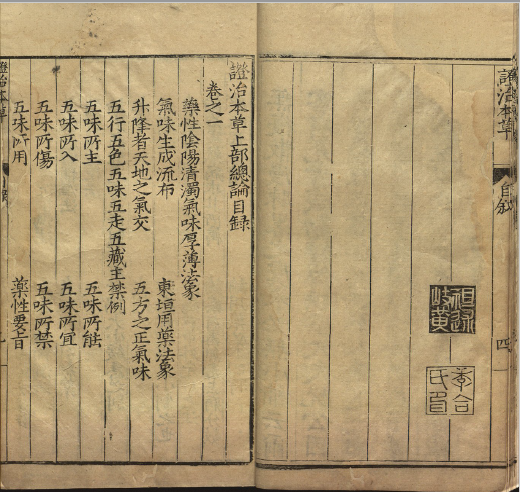 證治本草
自敘
四
祖述
岐黃
證治本草上部總論目錄
卷之一
藥性陰陽清濁氣味厚薄法象
氣味生成流布 東垣用藥法象
升降者天地之氣交 五方之正氣味
五行五色五味五走五藏主禁例
五味所主 五味所能
五味所入 五味所宜
五味所傷 五味所禁
五味所用 藥性要旨
證治本草